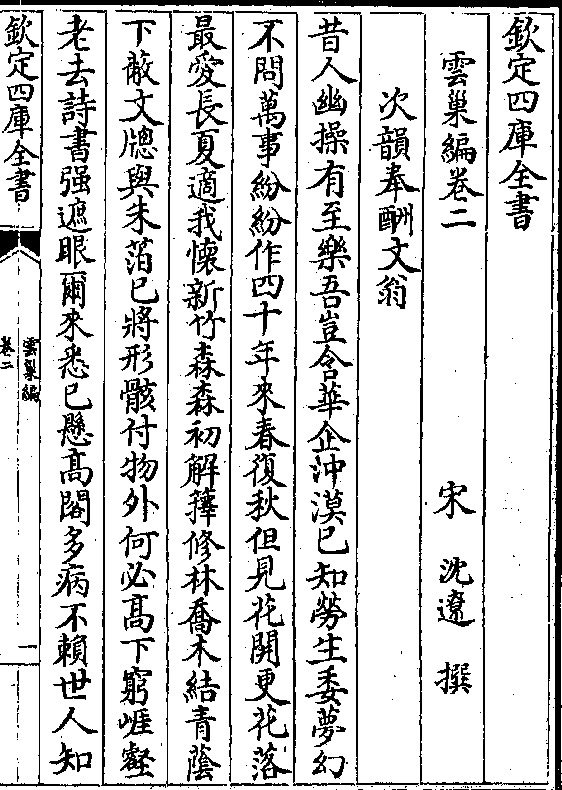 欽定四庫全書
雲巢編卷二
宋 沈遼 撰
次韻奉酬文翁
昔人幽操有至樂吾豈含華企沖漠已知勞生委夢幻
不問萬事紛紛作四十年來春復秋但見花開更花落
最愛長夏適我懷新竹森森初解籜修林喬木結青蔭
下敝文牕與朱箔已將形骸付物外何必高下窮崕壑
老去詩書强遮眼爾來悉已懸高閣多病不賴世人知
欽定四庫全書
雲巢編
卷二
一